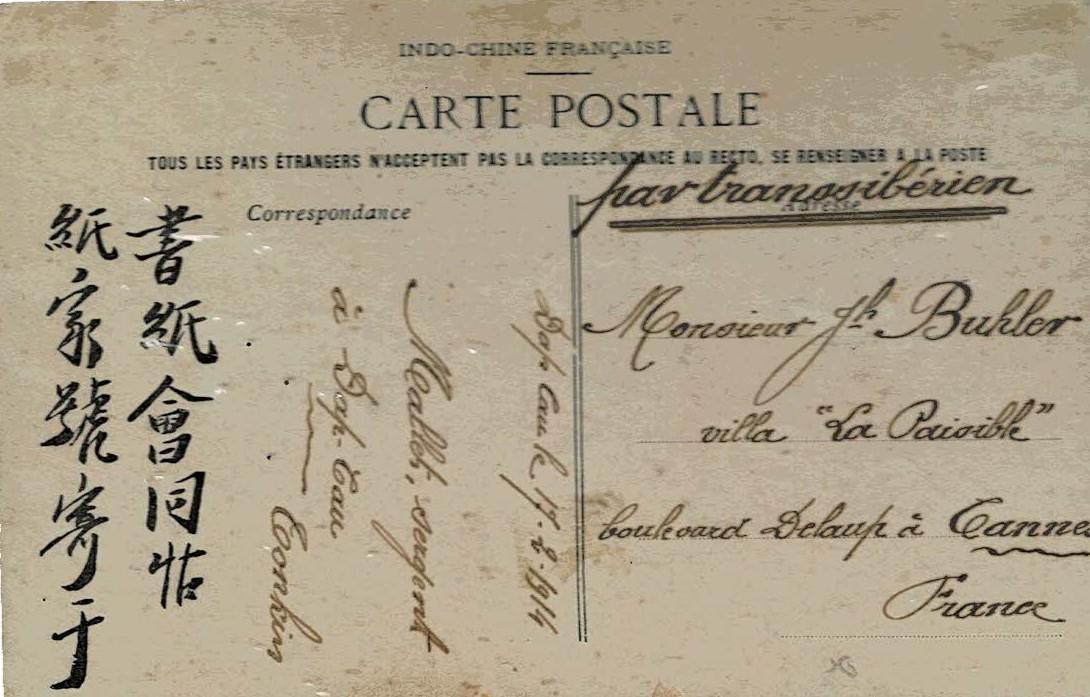 INDO-CHINE FRANÇAISE
CARTE POSTALE
TOUS LES PAYS ÉTRANGERS N'ACCEPTENT PAS LA CORRESPONDANCE AU RECTO, SE RENSEIGNER A LA POSTE
Correspondance
Adresse
par transsibérien
Monsieur Jh Buhler
villa "La Paisible"
boulevard Delaup à Canne
France
Dap Cau le 17-2-1914
Mallet, sergent
à Dap-Cau
Tonkin
書紙會同帖
紙家號寄于